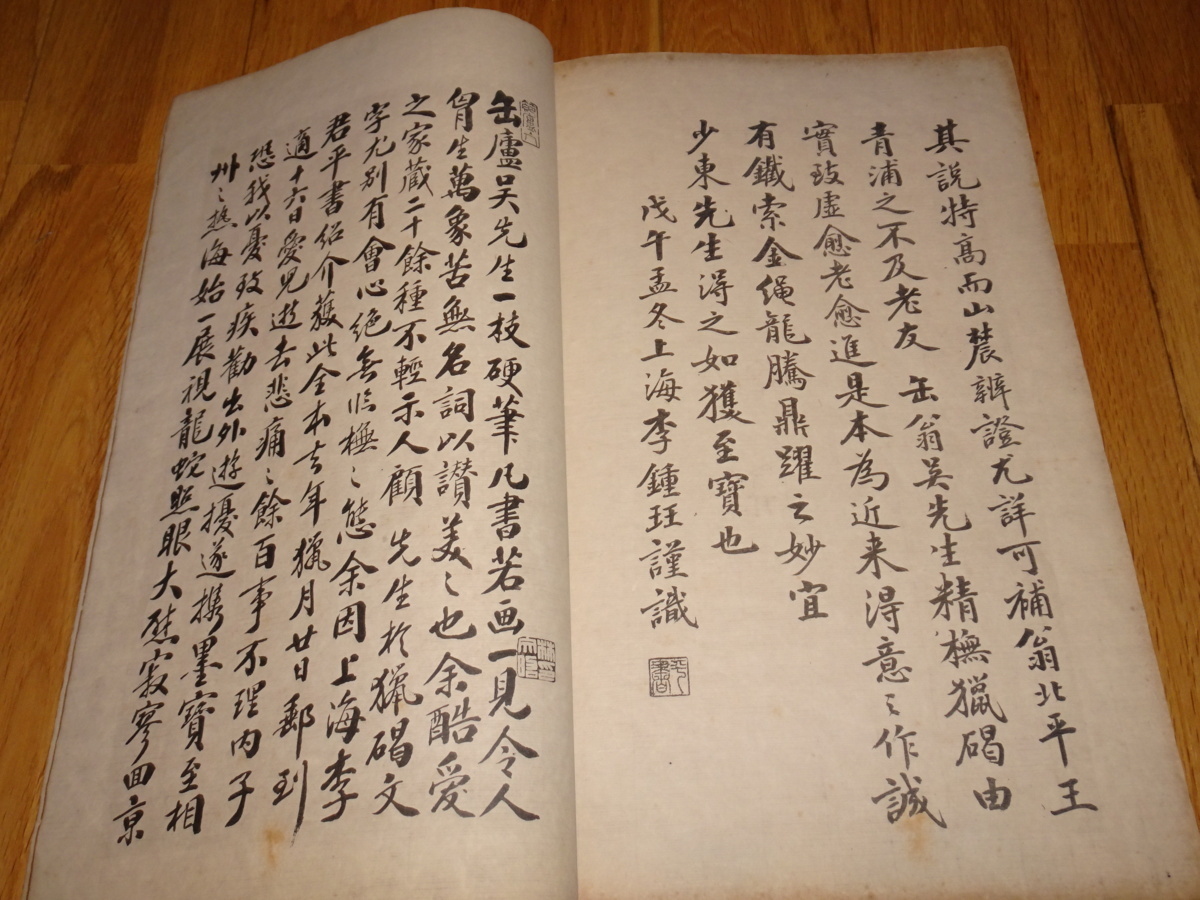 其說特高而山農辨證尤詳可補翁北平王
青浦之不及老友 缶翁吴先生精橅獵碣由
實致虛愈老愈進是本為近来得意之作誠
有鐵索金繩龍騰鼎躍之妙宜
少東先生得之如獲至寶也
戊午孟冬上海李鍾珏謹識
缶廬吴先生一枝硬筆凡書若画一見令人
胷生萬象苦無名詞以讃美之也余酷愛
之家藏二十餘種不輕示人顧 先生於獵碣文
字尤別有會心絕無臨橅之態余因上海李
君平書紹介獲此全本去年獵月廿日郵到
適十六日愛兒逝去悲痛之餘百事不理內子
恐我以憂致疾勸出外遊擾遂携墨寶至相
州之熱海始一展視龍蛇照眼大慰寂寥回京